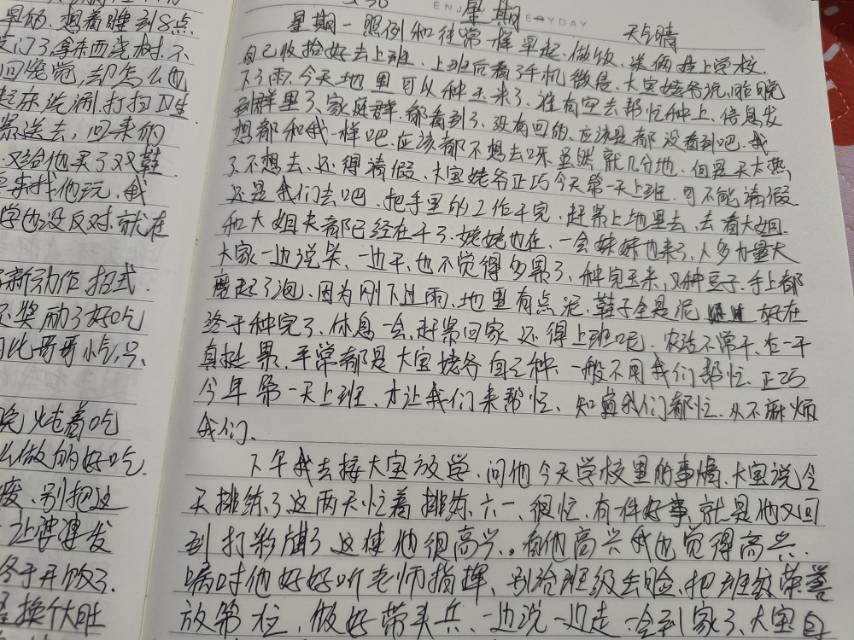 早的.想着睡到8点
回笼觉,却怎么也
起床洗漱.打扫卫生
又给他买了双鞋
来找他玩.我
学也没反对.就在
新动作招式.
奖励了好吃
比哥哥小气,只
炖着吃
么做的好吃.
别把这
让婆婆发
终于开饭了.
ENJOY EVERYDAY
星期一 天气晴
星期一照例和往常一样早起.做饭.送俩娃上学校.
自己收拾好去上班.上班后看了手机微信.大宝姥爷说,昨晚
下了雨.今天地里可以种玉米了.谁有空去帮忙种上.信息发
到群里了.家庭群.都看到了.没有回的.应该是都没看到吧.我
想都和我一样吧.应该都不想去呀.虽然就几分地.但是天太热,
了不想去.还得请假.大宝姥爷正巧今天第一天上班.可不能请假
还是我们去吧.把手里的工作干完.赶紧上地里去.去看大姐.
和大姐夫都已经在干了.姥姥也在.一会妹妹也来了.人多力量大
大家一边说笑、一边干.也不觉得多累了.种完玉米,又种豆子.手上都
磨起了泡.因为刚下过雨.地里有点泥.鞋子全是泥 好在
终于种完了.休息一会.赶紧回家.还得上班呢.农活不常干.在一干
真挺累.平常都是大宝姥爷自己种.一般不用我们帮忙.正巧
今年第一天上班.才让我们来帮忙.知道我们都忙.从不麻烦
我们.
下午我去接大宝放学.问他今天学校里的事情.大宝说今
天排练了.这两天忙着排练.六一、很忙.有件好事.就是他又回
到打彩旗了.这使他很高兴。看他高兴我也觉得高兴.
嘱咐他好好听老师指挥.别给班级丢脸.把班级荣誉
放第一位.做好带头兵.一边说一边走一会到家了.大宝自